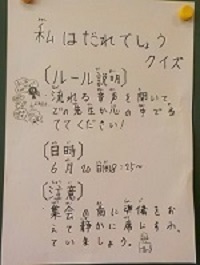 私はだれでしょう
クイズ
〔ルール説明〕
流れる音声を聞いて
どの先生か心の中で
ててください!
〔日時〕
6月20日
〔注意〕
集会の前に準備をお
えて静かに席に
ていましょう。